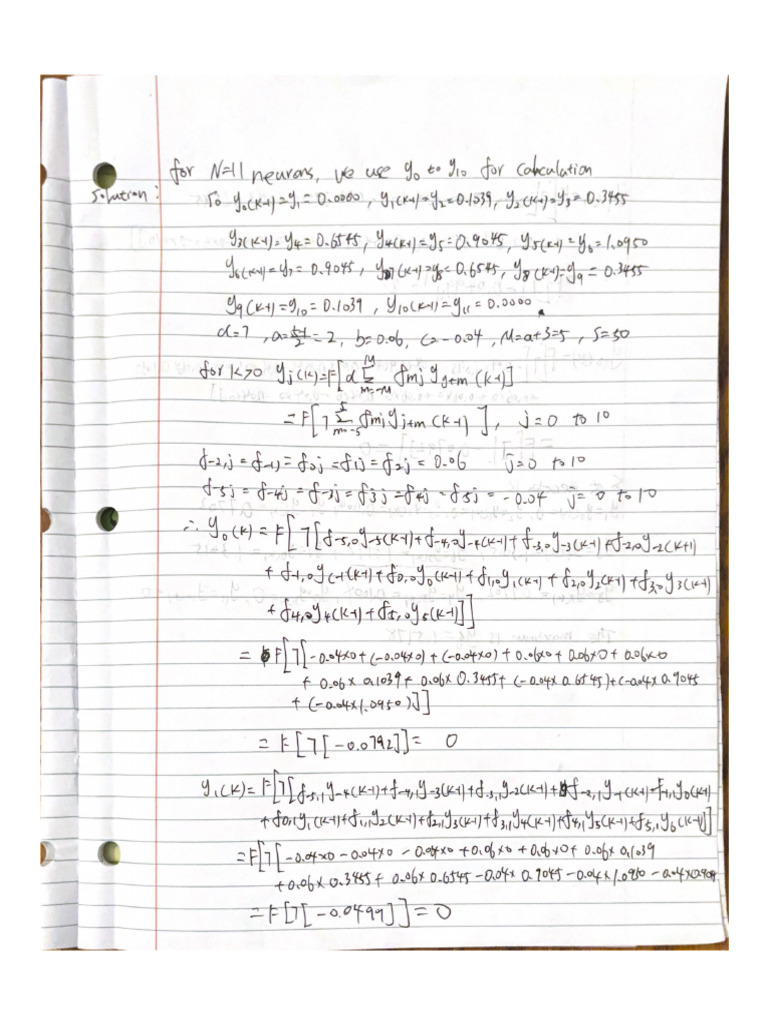 for N=11 neurons, we use y₀ to y₁₀ for calculation
Solution: So y₀(k-1)=y₁=0.0000, y₁(k-1)=y₂=0.1039, y₂(k-1)=y₃=0.3455
y₃(k-1)=y₄=0.6545, y₄(k-1)=y₅=0.9045, y₅(k-1)=y₆=1.0950
y₆(k-1)=y₇=0.9045, y₇(k-1)=y₈=0.6545, y₈(k-1)=y₉=0.3455
y₉(k-1)=y₁₀=0.1039, y₁₀(k-1)=y₁₁=0.0000.
d=7, a=(5-1)/2=2, b=0.06, c=-0.04, M=a+3=5, S=30
for k>0 yⱼ(k)=F[d Σ_{m=-M}^{M} fmj yj+m(k-1)]
=F[7 Σ_{m=-5}^{5} fmj yj+m(k-1)], j=0 to 10
f-2,j=f-1,j=f0j=f1j=f2j=0.06 j=0 to 10
f-5j=f-4j=f-3j=f3j=f4j=f5j=-0.04 j=0 to 10
∴ y₀(k)=F[7[f-5,0y-5(k-1)+f-4,0y-4(k-1)+f-3,0y-3(k-1)+f-2,0y-2(k-1)
+f-1,0y(-1(k-1)+f0,0y0(k-1)+f1,0y1(k-1)+f2,0y2(k-1)+f3,0y3(k-1)
+f4,0y4(k-1)+f5,0y5(k-1)]]
=F[7[-0.04x0+(-0.04x0)+(-0.04x0)+0.06x0+0.06x0+0.06x0
+0.06x0.1039+0.06x0.3455+(-0.04x0.6545)+(-0.04x0.9045
+(-0.04x1.0950)]]
=F[7[-0.0792]]=0
y₁(k)=F[7[f-5,1y-4(k-1)+f-4,1y-3(k-1)+f-3,1y-2(k-1)+f-2,1y-1(k-1)+f-1,1y0(k-1)
+f0,1y1(k-1)+f1,1y2(k-1)+f2,1y3(k-1)+f3,1y4(k-1)+f4,1y5(k-1)+f5,1y6(k-1)]]
=F[7[-0.04x0-0.04x0-0.04x0+0.06x0+0.06x0+0.06x0.1039
+0.06x0.3455+0.06x0.6545-0.04x0.9045-0.04x1.0950-0.04x0.904
=F[7[-0.0499]]=0